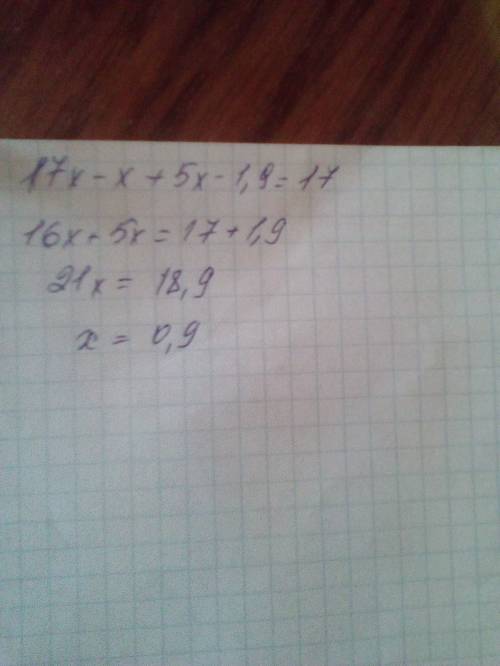 17x - x + 5x - 1,9 = 17
16x + 5x = 17 + 1,9
21x = 18,9
x = 0,9